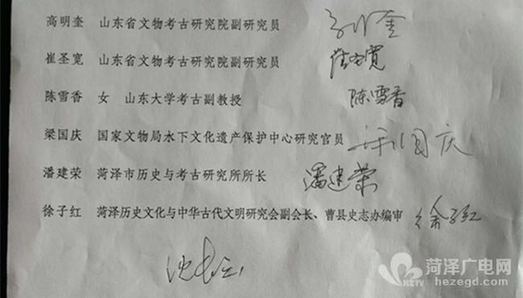 高明奎 山东省文物考古研究院副研究员
崔圣宽 山东省文物考古研究院副研究员 崔圣宽
陈雪香 女 山东大学考古副教授 陈雪香
梁国庆 国家文物局水下文化遗产保护中心研究官员 梁国庆
潘建荣 菏泽市历史与考古研究所所长 潘建荣
徐子红 菏泽历史文化与中华古代文明研究会副会长、曹县史志办编审 徐子红
菏泽广电网
HZTV
www.hezegd.com